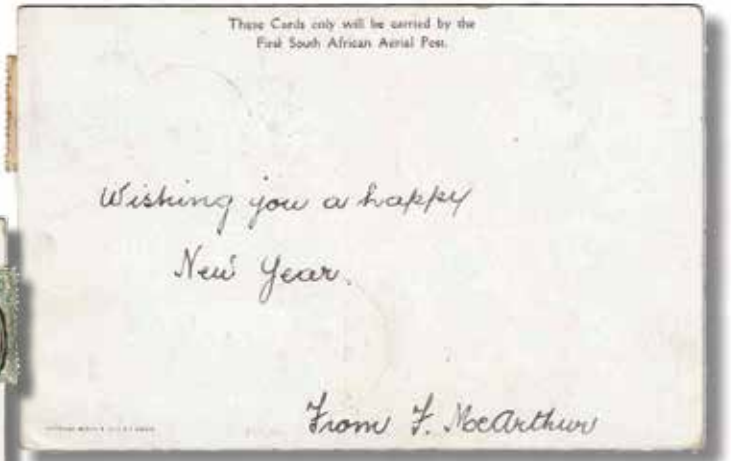 These Cards only will be carried by the
First South African Aerial Post.
Wishing you a happy
New Year.
From F. MacArthur